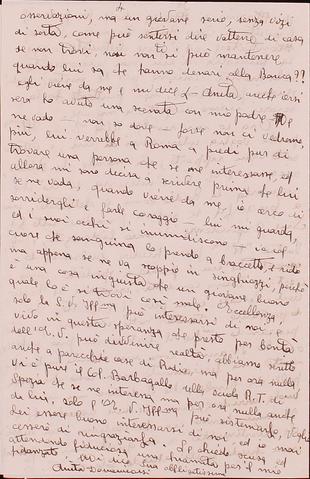 osservazioni, ma un giovane serio, senza vizi
di sorta, come può sentirsi dire vattene di casa
se non trovi, noi non ti si può mantenere
quando lui sa che hanno denari alla Banca??
Egli viene da me e mi dice - Anita, anche ieri
sera ho avuto una scenata con mio padre
me vado - non so dove - forse non ci vedremo
più, lui verrebbe a Roma a piedi pur di
trovare una persona che se ne interessasse, ed
allora mi sono decisa a scrivere prima che lui
se ne vada, quando viene da me, io cerco di
sorridergli e farle coraggio - lui mi guarda,
ed i suoi occhi si inumidiscono - io col
cuore che sanguina lo prendo a braccetto, e rido
ma appena se ne va scoppio in singhiozzi, perchè
è una cosa ingiusta che un giovane buono
quale lo è si trovi così male. Eccellenza,
solo la S. V. Ill.ma può interessarsi di noi, e
vivo in questa speranza che presto per bontà
dell' S. V. può divenire realtà, abbiamo scritto
anche a parecchie case di Radio, ma per ora nulla
Vi è pure il Col. Barbagallo alla scuola R.T. di
Spezia che se ne interessa ma per ora nulla anche
da lui, solo l' S. V. Ill.ma può sistemarlo, voglia
essere buono interessarsi di noi ed io mai
cesserò di ringraziarla. Le chiedo scusa ed
attendo fiduciosa una chiamata per il mio
fidanzato.
Sua obbligatissima
Anita